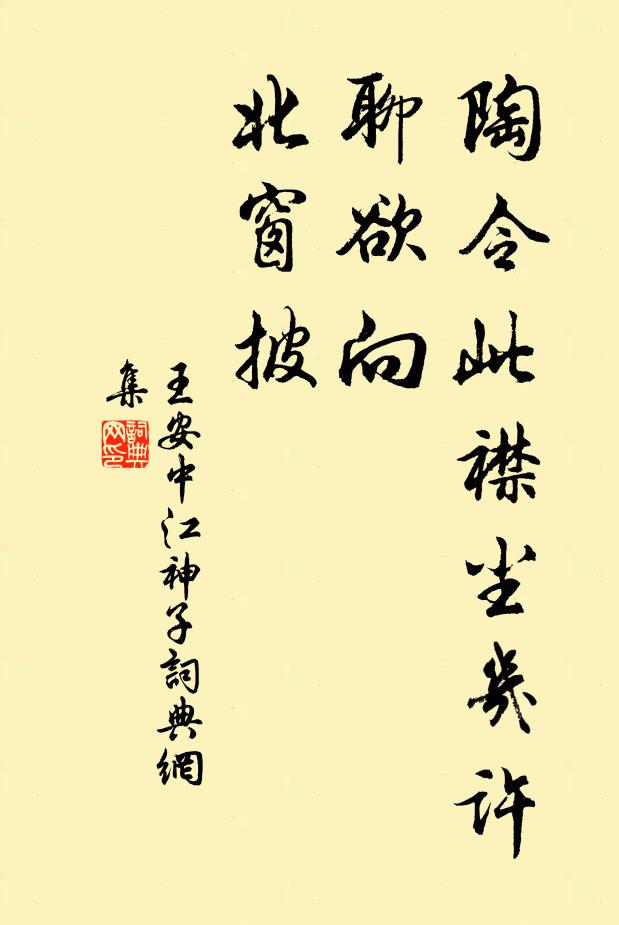 陶令此襟尘几许
聊欲向
北窗披
王安中江神子詞典網
集
詞典网印